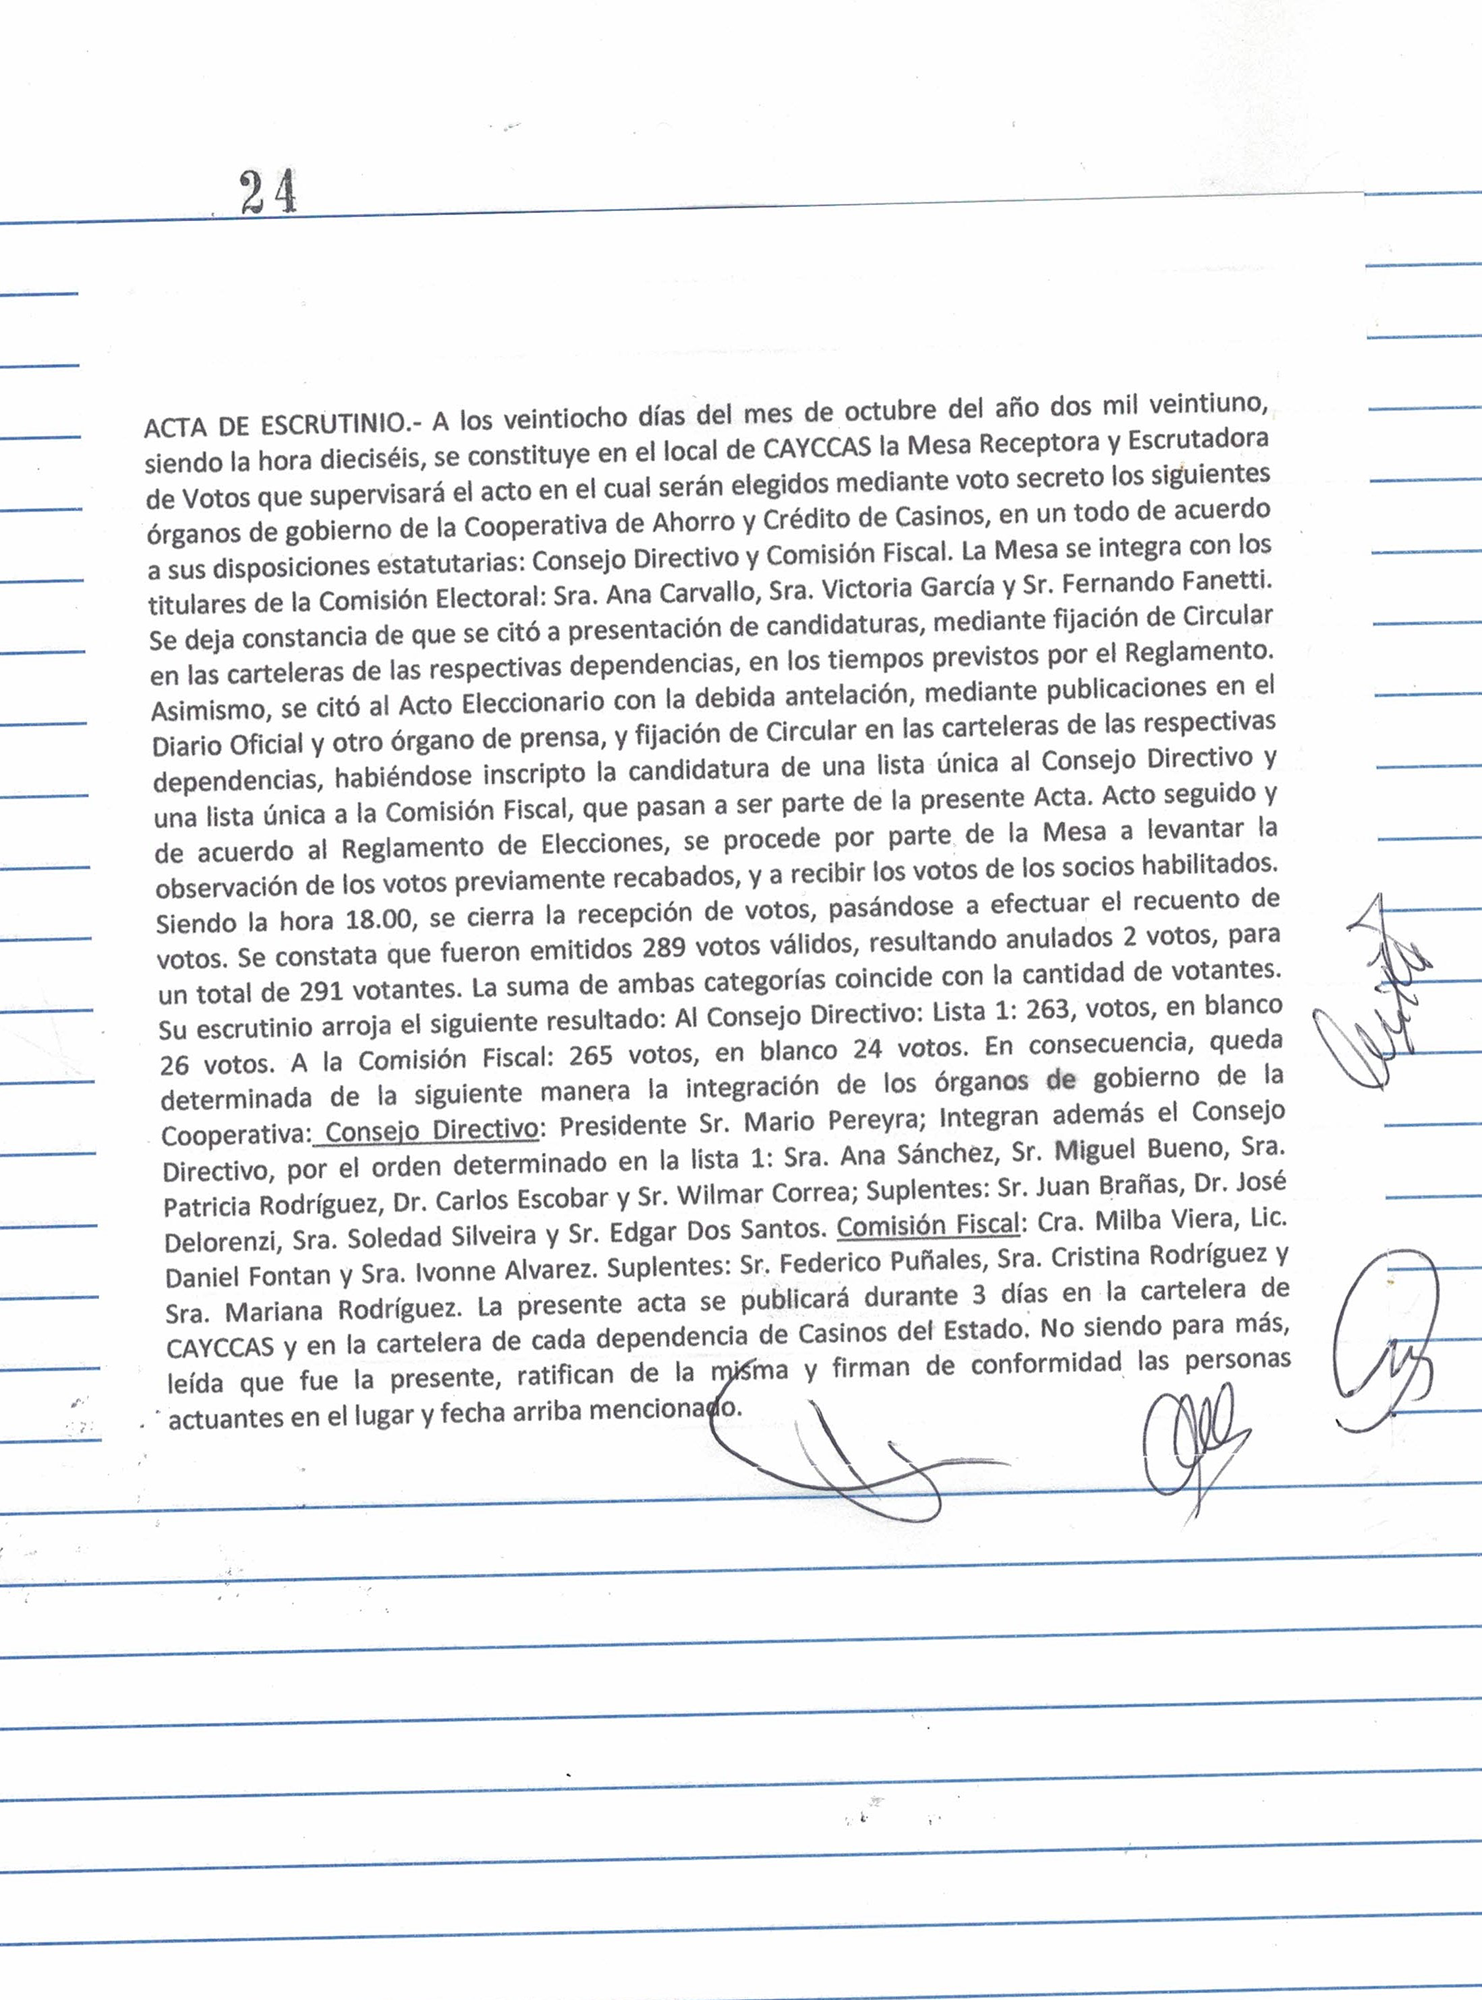 24
ACTA DE ESCRUTINIO.- A los veintiocho días del mes de octubre del año dos mil veintiuno,
siendo la hora dieciséis, se constituye en el local de CAYCCAS la Mesa Receptora y Escrutadora
de Votos que supervisará el acto en el cual serán elegidos mediante voto secreto los siguientes
órganos de gobierno de la Cooperativa de Ahorro y Crédito de Casinos, en un todo de acuerdo
a sus disposiciones estatutarias: Consejo Directivo y Comisión Fiscal. La Mesa se integra con los
titulares de la Comisión Electoral: Sra. Ana Carvallo, Sra. Victoria García y Sr. Fernando Fanetti.
Se deja constancia de que se citó a presentación de candidaturas, mediante fijación de Circular
en las carteleras de las respectivas dependencias, en los tiempos previstos por el Reglamento.
Asimismo, se citó al Acto Eleccionario con la debida antelación, mediante publicaciones en el
Diario Oficial y otro órgano de prensa, y fijación de Circular en las carteleras de las respectivas
dependencias, habiéndose inscripto la candidatura de una lista única al Consejo Directivo y
una lista única a la Comisión Fiscal, que pasan a ser parte de la presente Acta. Acto seguido y
de acuerdo al Reglamento de Elecciones, se procede por parte de la Mesa a levantar la
observación de los votos previamente recabados, y a recibir los votos de los socios habilitados.
Siendo la hora 18.00, se cierra la recepción de votos, pasándose a efectuar el recuento de
votos. Se constata que fueron emitidos 289 votos válidos, resultando anulados 2 votos, para
un total de 291 votantes. La suma de ambas categorías coincide con la cantidad de votantes.
Su escrutinio arroja el siguiente resultado: Al Consejo Directivo: Lista 1: 263, votos, en blanco
26 votos. A la Comisión Fiscal: 265 votos, en blanco 24 votos. En consecuencia, queda
determinada de la siguiente manera la integración de los órganos de gobierno de la
Cooperativa: Consejo Directivo: Presidente Sr. Mario Pereyra; Integran además el Consejo
Directivo, por el orden determinado en la lista 1: Sra. Ana Sánchez, Sr. Miguel Bueno, Sra.
Patricia Rodríguez, Dr. Carlos Escobar y Sr. Wilmar Correa; Suplentes: Sr. Juan Brañas, Dr. José
Delorenzi, Sra. Soledad Silveira y Sr. Edgar Dos Santos. Comisión Fiscal: Cra. Milba Viera, Lic.
Daniel Fontan y Sra. Ivonne Alvarez. Suplentes: Sr. Federico Puñales, Sra. Cristina Rodríguez y
Sra. Mariana Rodríguez. La presente acta se publicará durante 3 días en la cartelera de
CAYCCAS y en la cartelera de cada dependencia de Casinos del Estado. No siendo para más,
leída que fue la presente, ratifican de la misma y firman de conformidad las personas
actuantes en el lugar y fecha arriba mencionado.